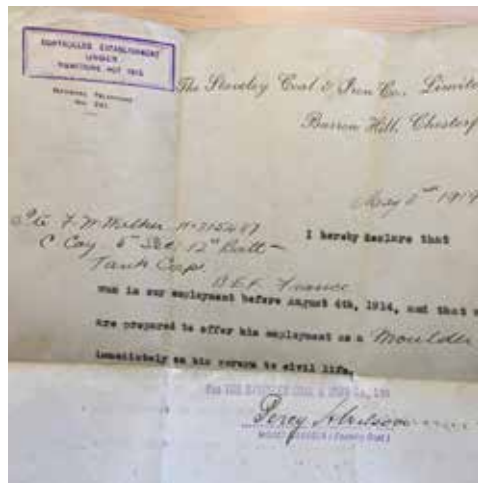 CONTROLLED ESTABLISHMENT
UNDER
MUNITIONS ACT 1915
NATIONAL TELEPHONE
The Staveley Coal & Iron Co. Limite
Barrow Hill, Chesterf
May 2nd 1917
Pte F. W. Walker
I hereby declare that
C Coy 5th Sec. 12th Batt-
Tank Corps
B.E.F. France
was in our employment before August 4th, 1914, and that w
are prepared to offer him employment as a Moulder
immediately on his return to civil life.
For THE STAVELEY COAL & IRON Co., LTD
Percy